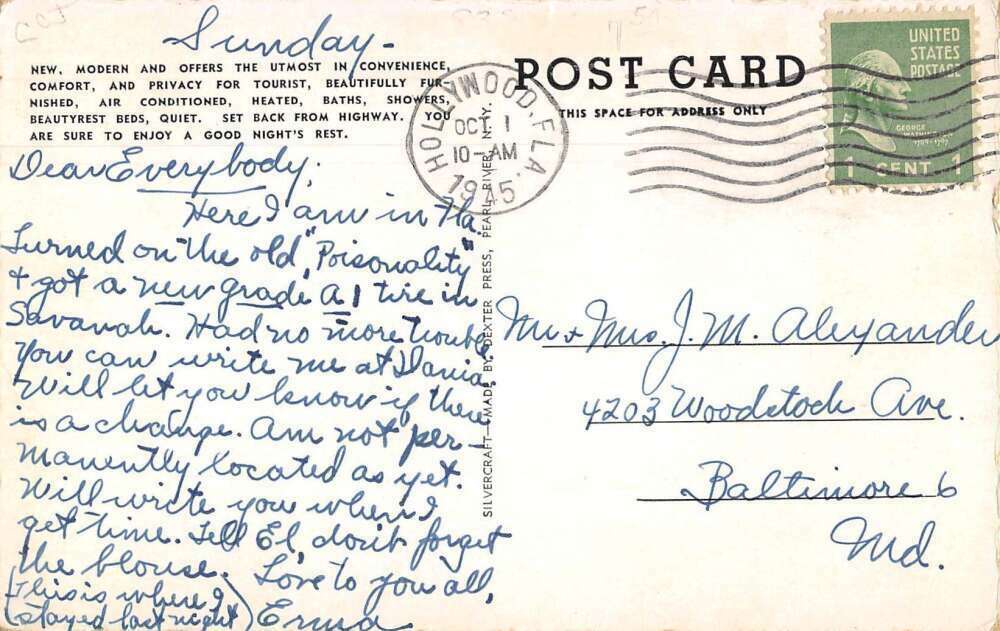 Sunday-
NEW, MODERN AND OFFERS THE UTMOST IN CONVENIENCE,
COMFORT, AND PRIVACY FOR TOURIST, BEAUTIFULLY FUR-
NISHED, AIR CONDITIONED, HEATED, BATHS, SHOWERS,
BEAUTYREST BEDS, QUIET. SET BACK FROM HIGHWAY. YOU
ARE SURE TO ENJOY A GOOD NIGHT'S REST.
Dear Everybody,
Here I am in Fla.
Turned on the old "Poisonality"
& got a new grade A1 tire in
Savanah. Had no more trouble
You can write me at Dania.
Will let you know if there
is a change. Am not per-
manently located as yet.
Will write you when I
get time. Tell El, don't forget
the blouse. Love to you all,
(This is where I
stayed last night) Erma
SILVERCRAFT—MADE BY DEXTER PRESS, PEARL RIVER, N.Y.
POST CARD
THIS SPACE FOR ADDRESS ONLY
HOLLYWOOD, FLA.
OCT 1
10-AM
1945
UNITED
STATES
POSTAGE
GEORGE
WASHINGTON
1789-1797
1 CENT 1
Mr. & Mrs. J. M. Alexander
4203 Woodstock Ave.
Baltimore 6
Md.